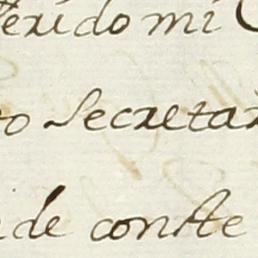 ferido mi
to Secretar
de conste